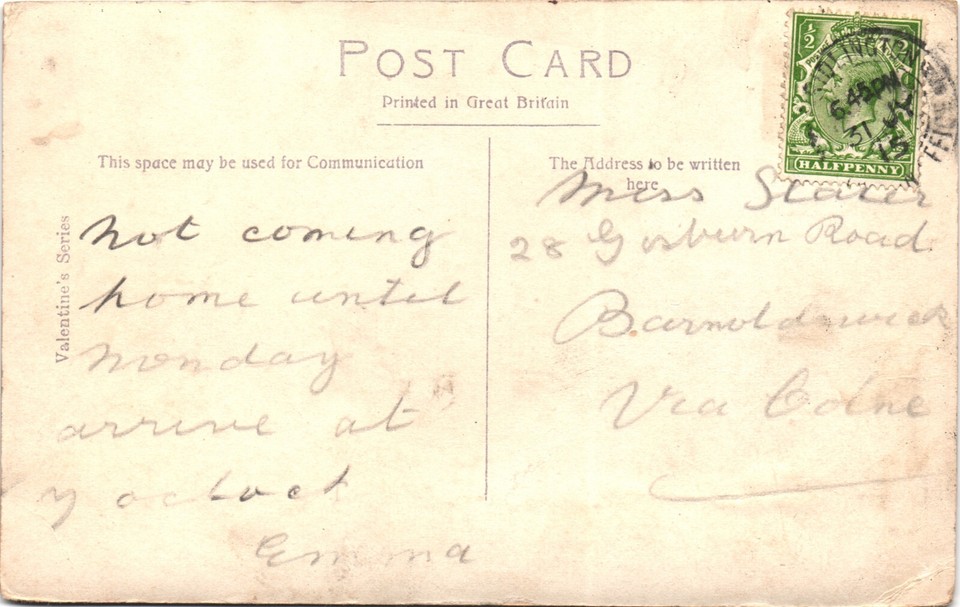 POST CARD
Printed in Great Britain
This space may be used for Communication
The Address to be written
here
Valentine's Series
Not coming
home until
Monday
arrive at
7 oclock
Emma
Miss Slater
28 Gisburn Road
Barnoldswick
Via Colne
1/2
HALFPENNY
6.45 PM
31
15